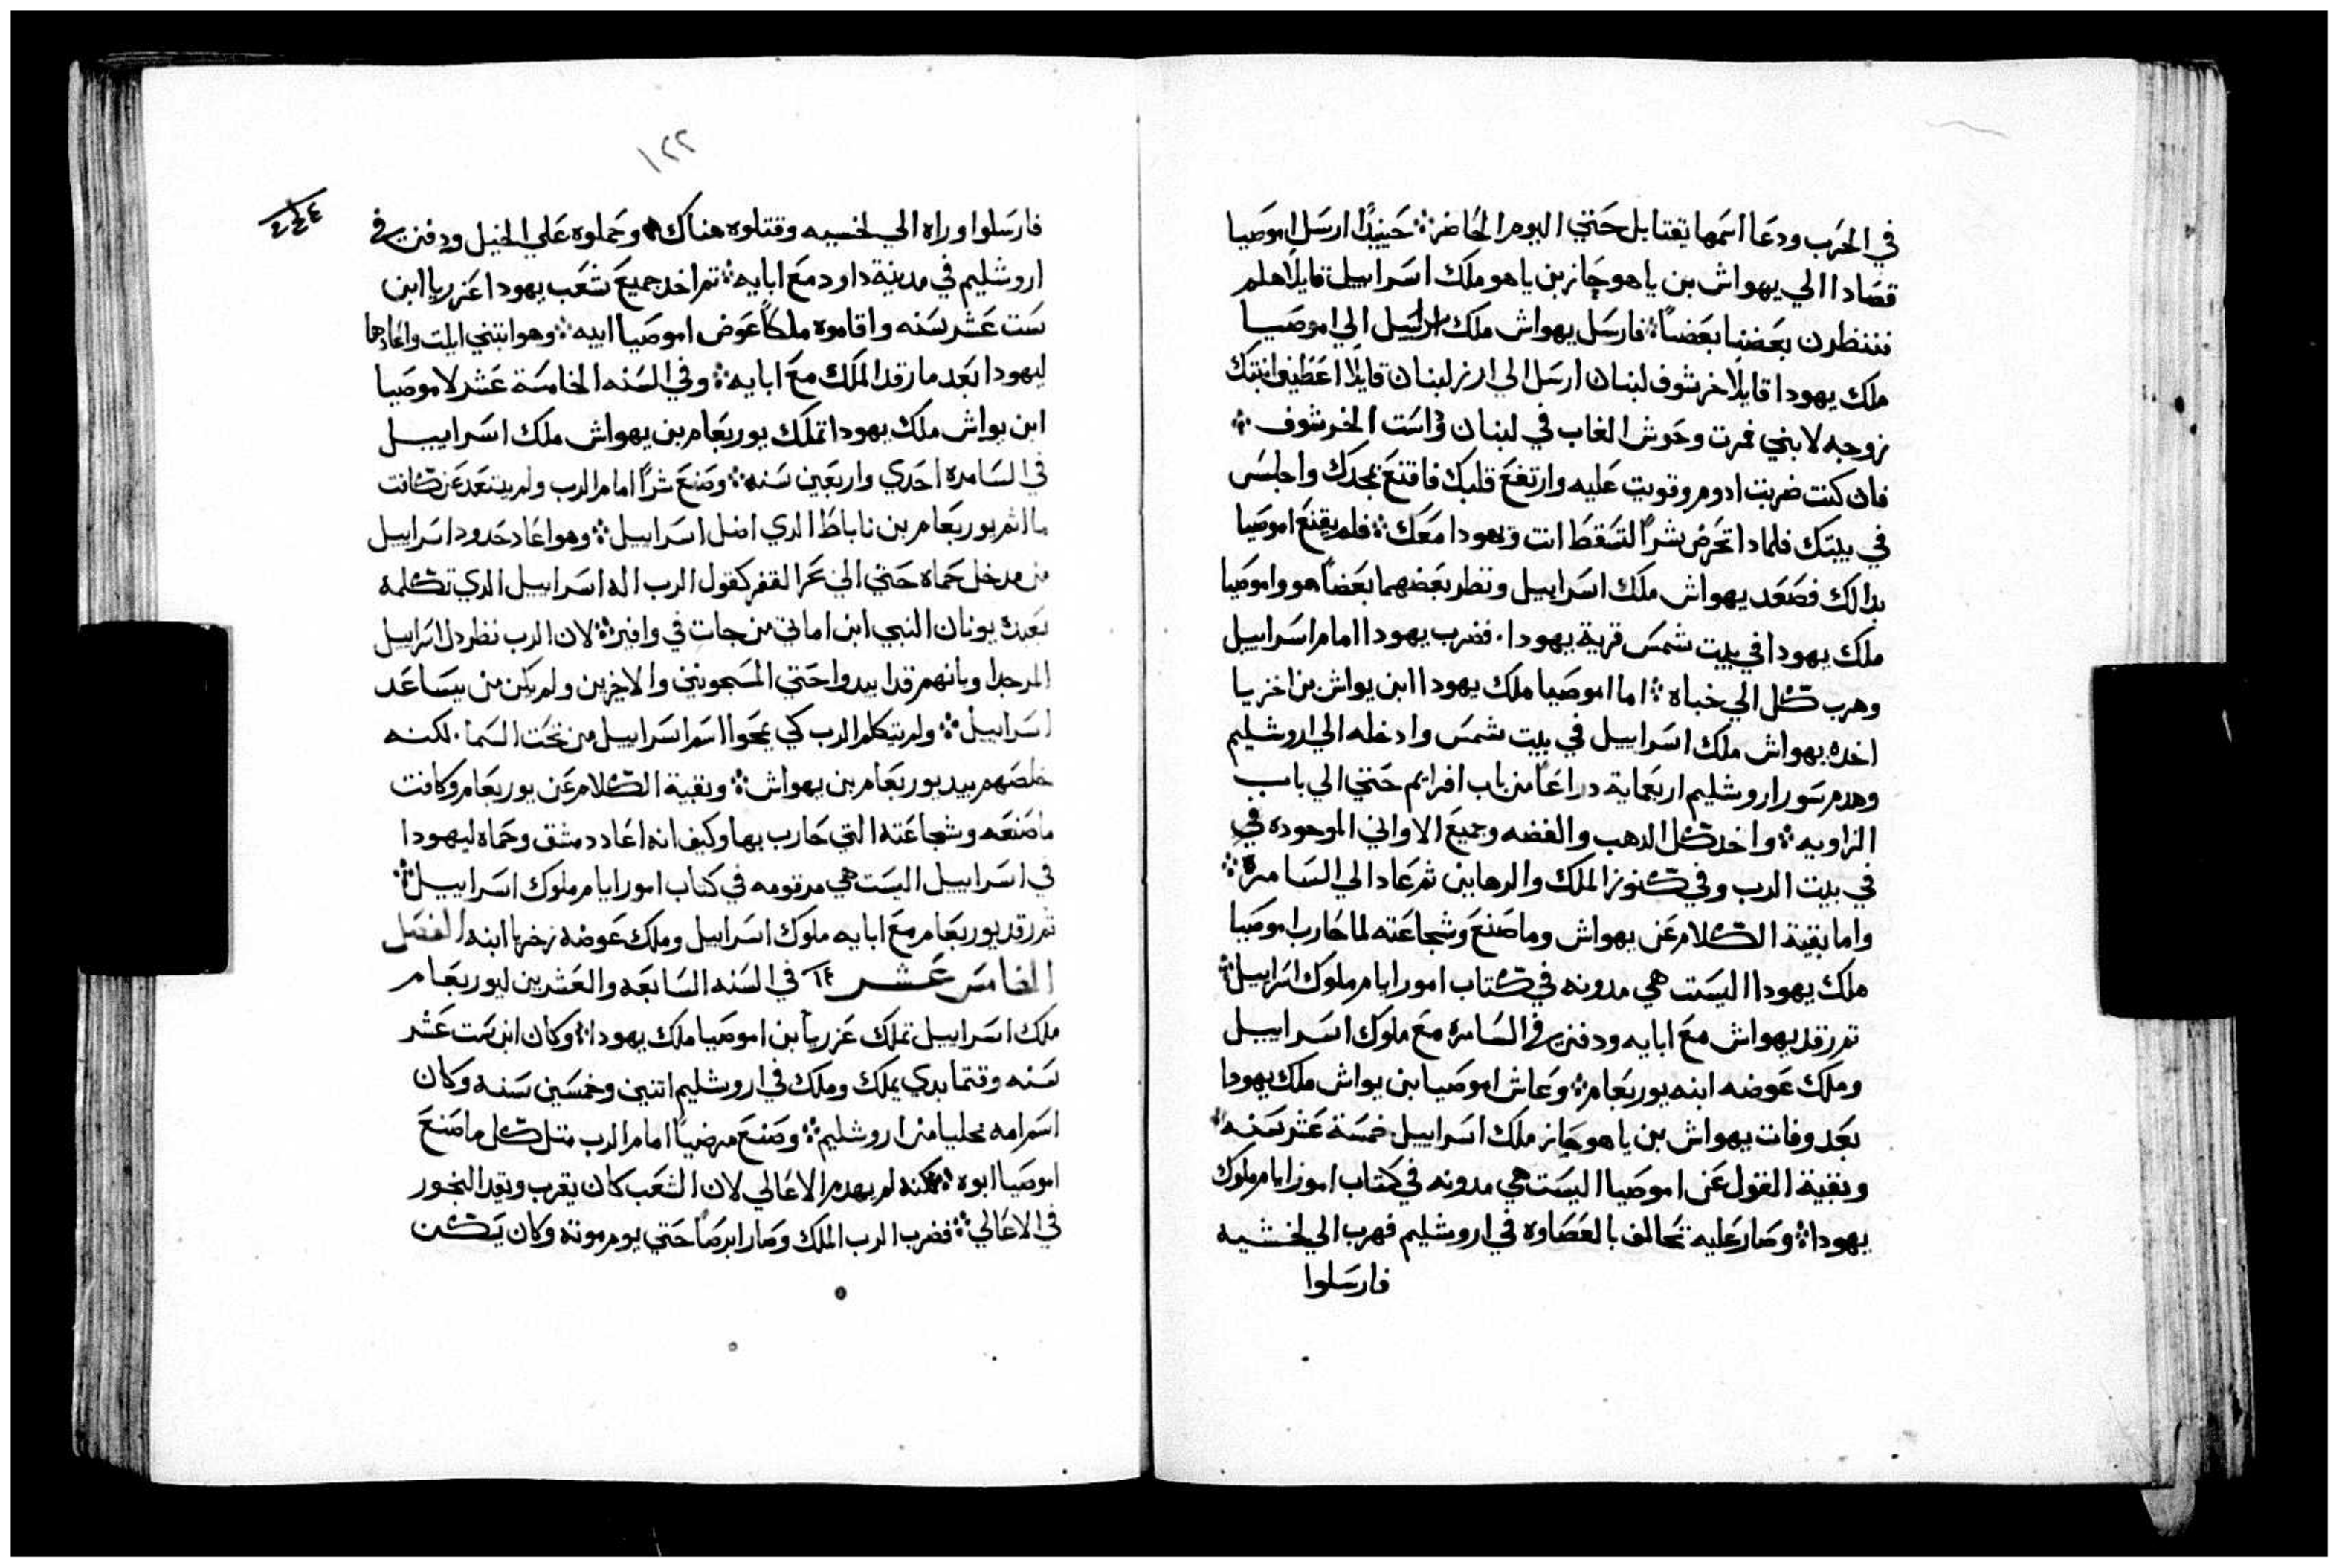 في الحرب ودعا اسمها يقتابل حتي اليوم الحاضر ⁘ حينيدًا ارسل اموصيا
قصادا الي يهواش بن ياهوجاز بن ياهو ملك اسراييل قايلا هلم
فننظرن بعضنا بعضاً ⁘ فارسل يهواش ملك اسراييل الي اموصيا
ملك يهودا قايلا خرشوف لبنان ارسل الي ارز لبنان قايلا اعطيني ابنتك
زوجه لابني فمرت وحوش الغاب في لبنان فداست الخرشوف ⁘
فان كنت ضربت ادوم وقويت عليه وارتفع قلبك فاقتنع بمجدك واجلس
في بيتك فلمادا تحرض شراً لتسقط انت ويهودا معك ⁘ فلم يقنع اموصيا
بدالك فصعد يهواش ملك اسراييل ونظر بعضهما بعضاً هو واموصيا
ملك يهودا في بيت شمس قرية يهودا. فضرب يهودا امام اسراييل
وهرب كل الي خباه ⁘ اما اموصيا ملك يهودا ابن يواش بن اخزيا
اخده يهواش ملك اسراييل في بيت شمس وادخله الي اروشليم
وهدم سور اروشليم اربعماية دراعاً من باب افرايم حتي الي باب
الزاويه ⁘ واخد كل الدهب والفضه وجميع الاواني الموجوده في
في بيت الرب وفي كنوز الملك والرهاين ثم عاد الي السامرة ⁘
واما بقية الكلام عن يهواش وما صنع وشجاعته لما حارب اموصيا
ملك يهودا اليست هي مدونه في كتاب امور ايام ملوك اسراييل ⁘
ثم رقد يهواش مع ابايه ودفن في السامره مع ملوك اسراييل
وملك عوضه ابنه يوربعام ⁘ وعاش اموصيا بن يواش ملك يهودا
بعد وفات يهواش بن ياهوجاز ملك اسراييل خمسة عشر سنه ⁘
وبقية القول عن اموصيا اليست هي مدونه في كتاب امور ايام ملوك
يهودا ⁘ وصار عليه تحالف بالعصاوه في اروشليم فهرب الي لخشيه
فارسلوا
١٢٢
٤
فارسلوا وراه الي لخسيه وقتلوه هناك وحملوه علي الخيل ودفن في
اروشليم في مدينة داود مع ابايه ⁘ ثم اخد جميع شعب يهودا عزريا ابن
ست عشر سنه واقاموه ملكاً عوض اموصيا ابيه ⁘ وهو ابتني ايلت واعادها
ليهودا بعد ما رقد الملك مع ابايه ⁘ وفي السنه الخامسة عشر لاموصيا
ابن يواش ملك يهودا تملك يوربعام بن يهواش ملك اسراييل
في السامره احدي واربعين سنه ⁘ وصنع شراً امام الرب ولم يبتعد عن كافت
ما اثم يوربعام بن ناباط الدي اضل اسراييل ⁘ وهو اعاد حدود اسراييل
من مدخل حماه حتي الي بحر القفر كقول الرب اله اسراييل الدي تكلمه
بعبده يونان النبي ابن اماتي من جات في وافير ⁘ لان الرب نظر دل اسراييل
المر جدا وبانهم قد ابيدوا حتي المسجونيني والاخرين ولم يكن من يساعد
اسراييل ⁘ ولم يتكلم الرب كي يمحوا اسم اسراييل من تحت السما. لكنه
خلصهم بيد يوربعام بن يهواش ⁘ وبقية الكلام عن يوربعام وكافت
ما صنعه وشجاعته التي حارب بها وكيف انه اعاد دمشق وحماه ليهودا
في اسراييل اليست هي مرقومه في كتاب امور ايام ملوك اسراييل ⁘
ثم رقد يوربعام مع ابايه ملوك اسراييل وملك عوضه زخريا ابنه الفصل
الخامس عشر في السنه السابعه والعشرين ليوربعام
ملك اسراييل تملك عزريا بن اموصيا ملك يهودا ⁘ وكان ابن ست عشر
سنه وقتما بدي يملك وملك في اروشليم اتنين وخمسين سنه وكان
اسم امه يحليا من اروشليم ⁘ وصنع مرضياً امام الرب متل كل ما صنع
اموصيا ابوه ⁘ لكنه لم يهدم الاعالي لان الشعب كان يقرب ويقد البخور
في الاعالي ⁘ فضرب الرب الملك وصار ابرصاً حتي يوم موته وكان يسكن